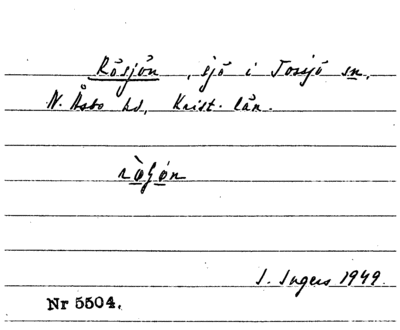 Rösjön, sjö i Tossjö sn.
N. Åsbo hd, Krist. län.
I. Ingers 1949.
Nr 5504.